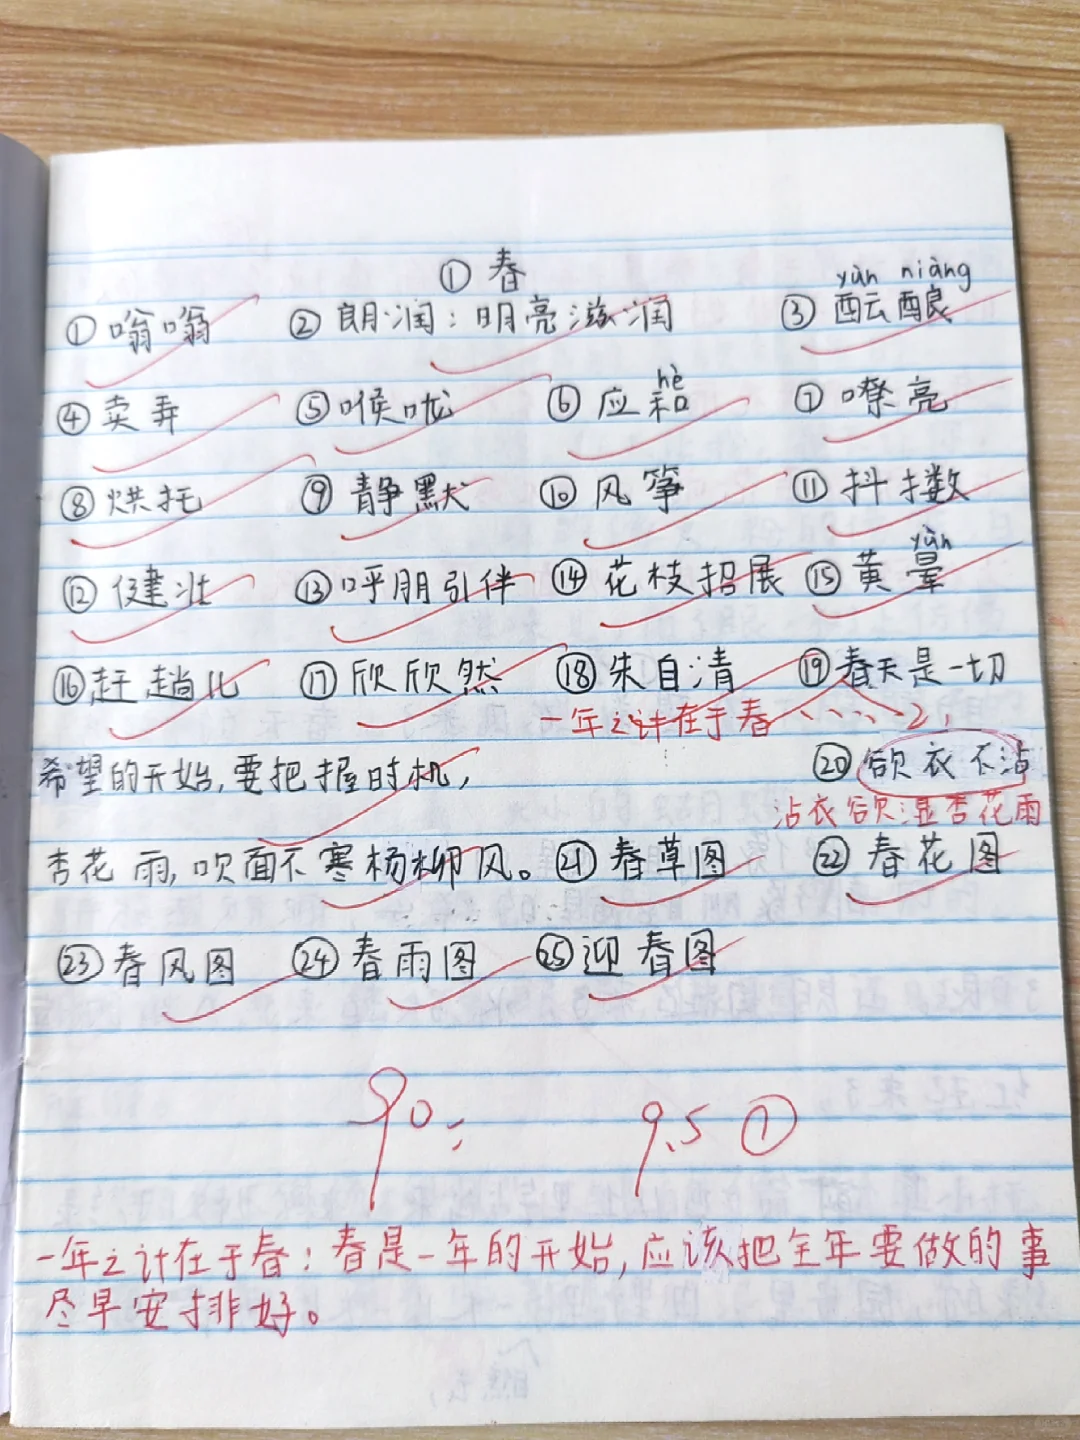 ① 春
yùn niàng
① 嗡嗡 ② 朗润：明亮滋润 ③ 酝酿
hè
④ 卖弄 ⑤ 喉咙 ⑥ 应和 ⑦ 嘹亮
⑧ 烘托 ⑨ 静默 ⑩ 风筝 ⑪ 抖擞
yùn
⑫ 健壮 ⑬ 呼朋引伴 ⑭ 花枝招展 ⑮ 黄晕
⑯ 赶趟儿 ⑰ 欣欣然 ⑱ 朱自清 ⑲ 春天是一切
一年之计在于春
希望的开始，要把握时机， ⑳ 欲衣不沾
沾衣欲湿杏花雨
杏花雨，吹面不寒杨柳风。 ㉑ 春草图 ㉒ 春花图
㉓ 春风图 ㉔ 春雨图 ㉕ 迎春图
90 9.5 ①
一年之计在于春：春是一年的开始，应该把全年要做的事
尽早安排好。